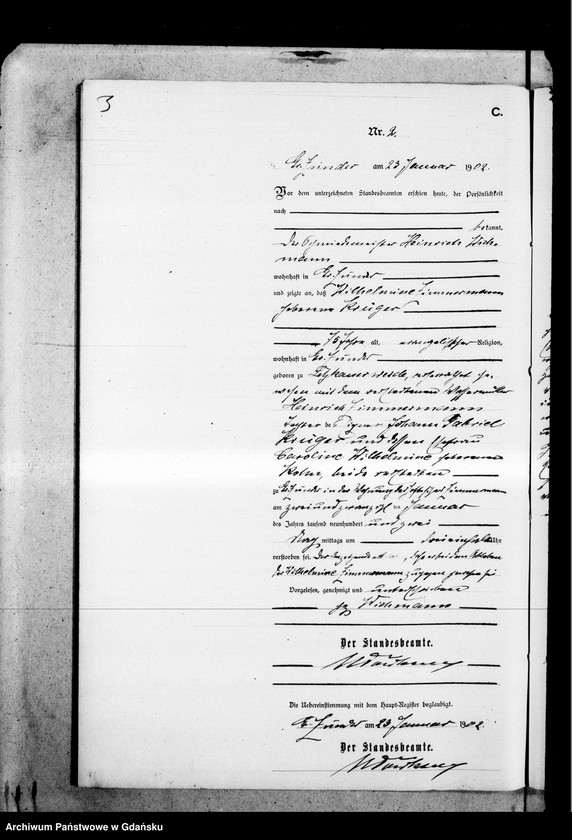 3
C.
Nr. 2.
Gr. Zünder am 23 Januar 1902.
Vor dem unterzeichneten Standesbeamten erschien heute, der Persönlichkeit
nach
bekannt,
der Schmiedemeister Heinrich Wich-
mann
wohnhaft in Gr. Zünder
und zeigte an, daß Wilhelmine Zimmermann
geborene Krüger
75 Jahre alt, evangelischer Religion,
wohnhaft in Gr. Zünder
geboren zu verheirathet ge-
wesen mit dem verstorbenen
Heinrich Zimmermann
Tochter des Johann Gabriel
Krüger und dessen Ehefrau
Caroline Wilhelmine geborenen
beide verstorben
zu Gr. Zünder in der Wohnung des Zimmermann
am zweiundzwanzigsten Januar
des Jahres tausend neunhundert und zwei
Nachmittags um Uhr
verstorben sei. Der Anzeigende daß er bei dem Ableben
der Wilhelmine Zimmermann zugegen gewesen sei
Vorgelesen, genehmigt und unterschrieben
gez Wichmann
Der Standesbeamte.
Die Uebereinstimmung mit dem Haupt-Register beglaubigt.
Gr. Zünder am 23 Januar 1902
Der Standesbeamte.
Archiwum Państwowe w Gdańsku